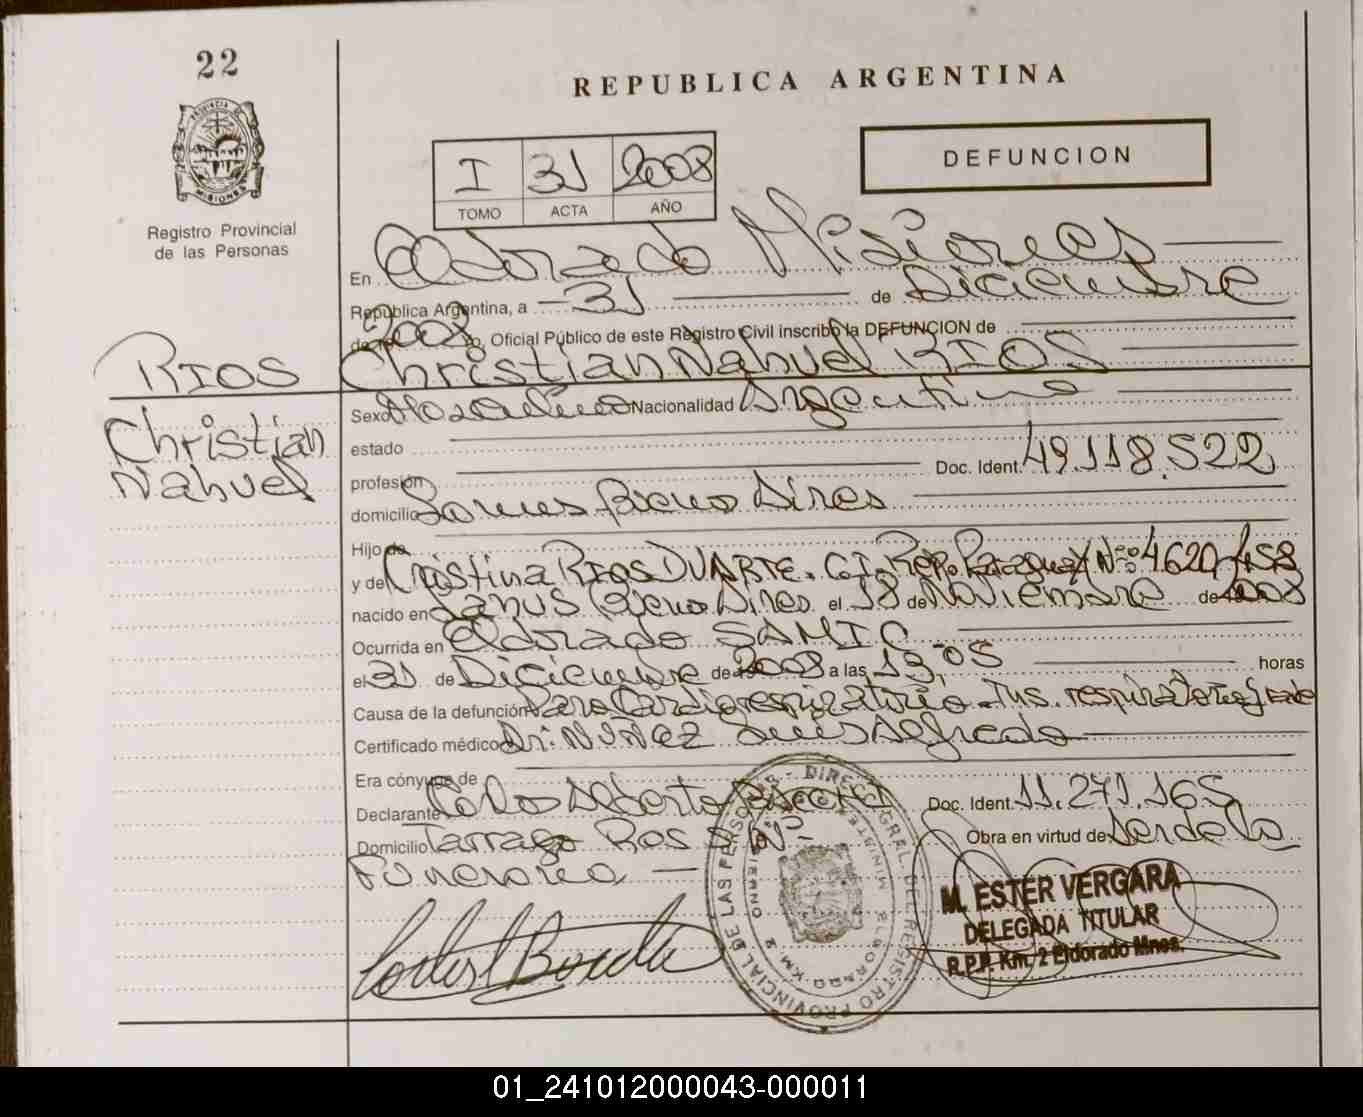 22
REPUBLICA ARGENTINA
PROVINCIA DE MISIONES
Registro Provincial
de las Personas
I 31 2008
TOMO ACTA AÑO
DEFUNCION
En Eldorado Misiones
República Argentina, a 31 de Diciembre
de 2008, Oficial Público de este Registro Civil inscribo la DEFUNCION de
RIOS
Christian Nahuel RIOS
Christian
Nahuel
Sexo Masculino Nacionalidad Argentino
estado
profesión Doc. Ident. 49.118.522
domicilio Lanus Bueno Aires
Hijo de
y de Cristina RIOS DUARTE. C.I. Rep. Paraguay Nº 4.620.458
nacido en Lanus Bueno Aires el 18 de Noviembre de 2008
Ocurrida en Eldorado SAMIC
el 31 de Diciembre de 2008 a las 13,05 horas
Causa de la defunción Paro Cardiorespiratorio - Ins. respiratoria
Certificado médico Dr. NUÑEZ Luis Alfredo
Era cónyuge de
Declarante Carlos Alberto Doc. Ident. 11.271.165
Domicilio Tarrago Ros S/Nº - Obra en virtud de
Funeraria
M. ESTER VERGARA
DELEGADA TITULAR
R.P.P. Km. 2 Eldorado Mnes.
01_241012000043-000011